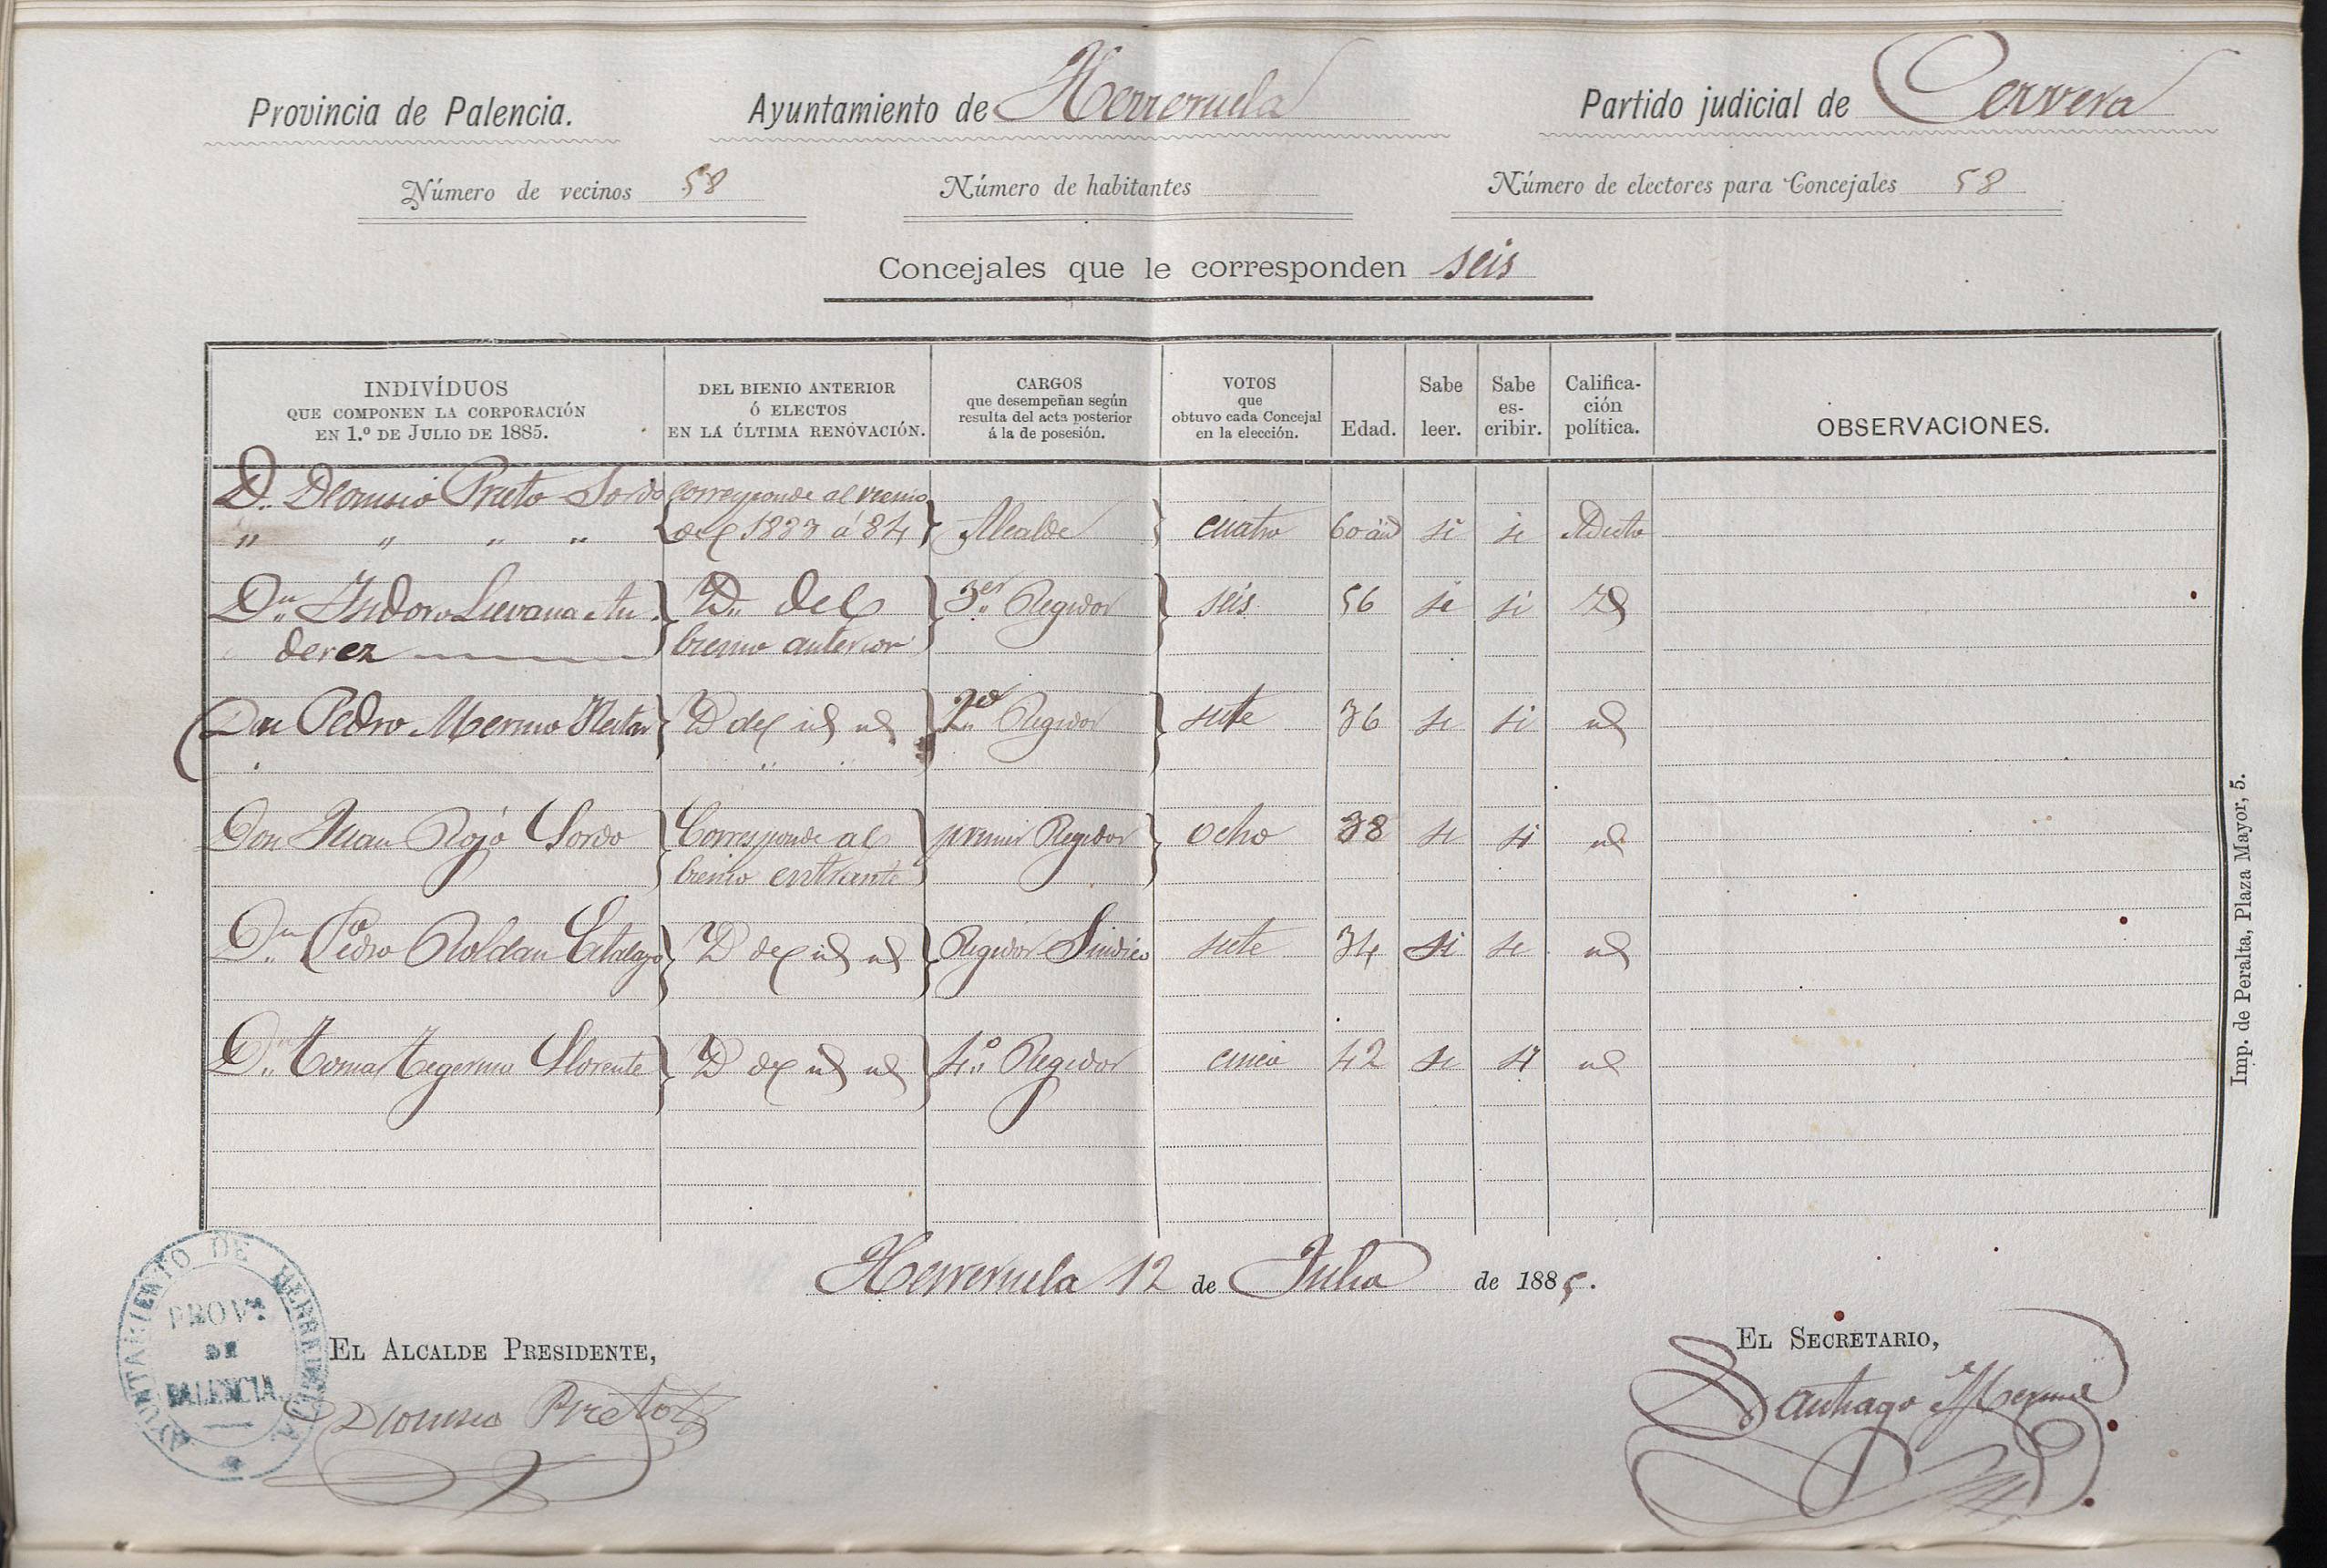 Provincia de Palencia. Ayuntamiento de Herreruela Partido judicial de Cervera
Número de vecinos 58 Número de habitantes Número de electores para Concejales 58
Concejales que le corresponden seis
INDIVÍDUOS
QUE COMPONEN LA CORPORACIÓN
EN 1.º DE JULIO DE 1885.
DEL BIENIO ANTERIOR
Ó ELECTOS
EN LA ÚLTIMA RENOVACIÓN.
CARGOS
que desempeñan según
resulta del acta posterior
á la de posesión.
VOTOS
que
obtuvo cada Concejal
en la elección.
Edad.
Sabe
leer.
Sabe
es-
cribir.
Califica-
ción
política.
OBSERVACIONES.
D. Dionisio Prieto Sordo corresponde al vienio
" " " " del 1883 á 84 Alcalde cuatro 60 si si Adicto
Dn Isidoro Lievana An- Yd. del 3er Regidor seis 56 si si Yd
derez bienio anterior
Don Pedro Merino Yd del id id 2do Regidor siete 36 si si id
Don Juan Rojo Sordo Corresponde al primer Regidor ocho 38 si si id
bienio entrante
Dn Pedro Roldan Yd del id id Regidor Sindico siete 34 si si id
Dn Tomas Tegerina Llorente Yd del id id 4º Regidor cinco 42 si si id
Herreruela 12 de Julio de 1885.
AYUNTAMIENTO DE HERRERUELA
PROVª
DE
PALENCIA.
EL ALCALDE PRESIDENTE,
Dionisio Prieto
EL SECRETARIO,
Santiago Merino
Imp. de Peralta, Plaza Mayor, 5.